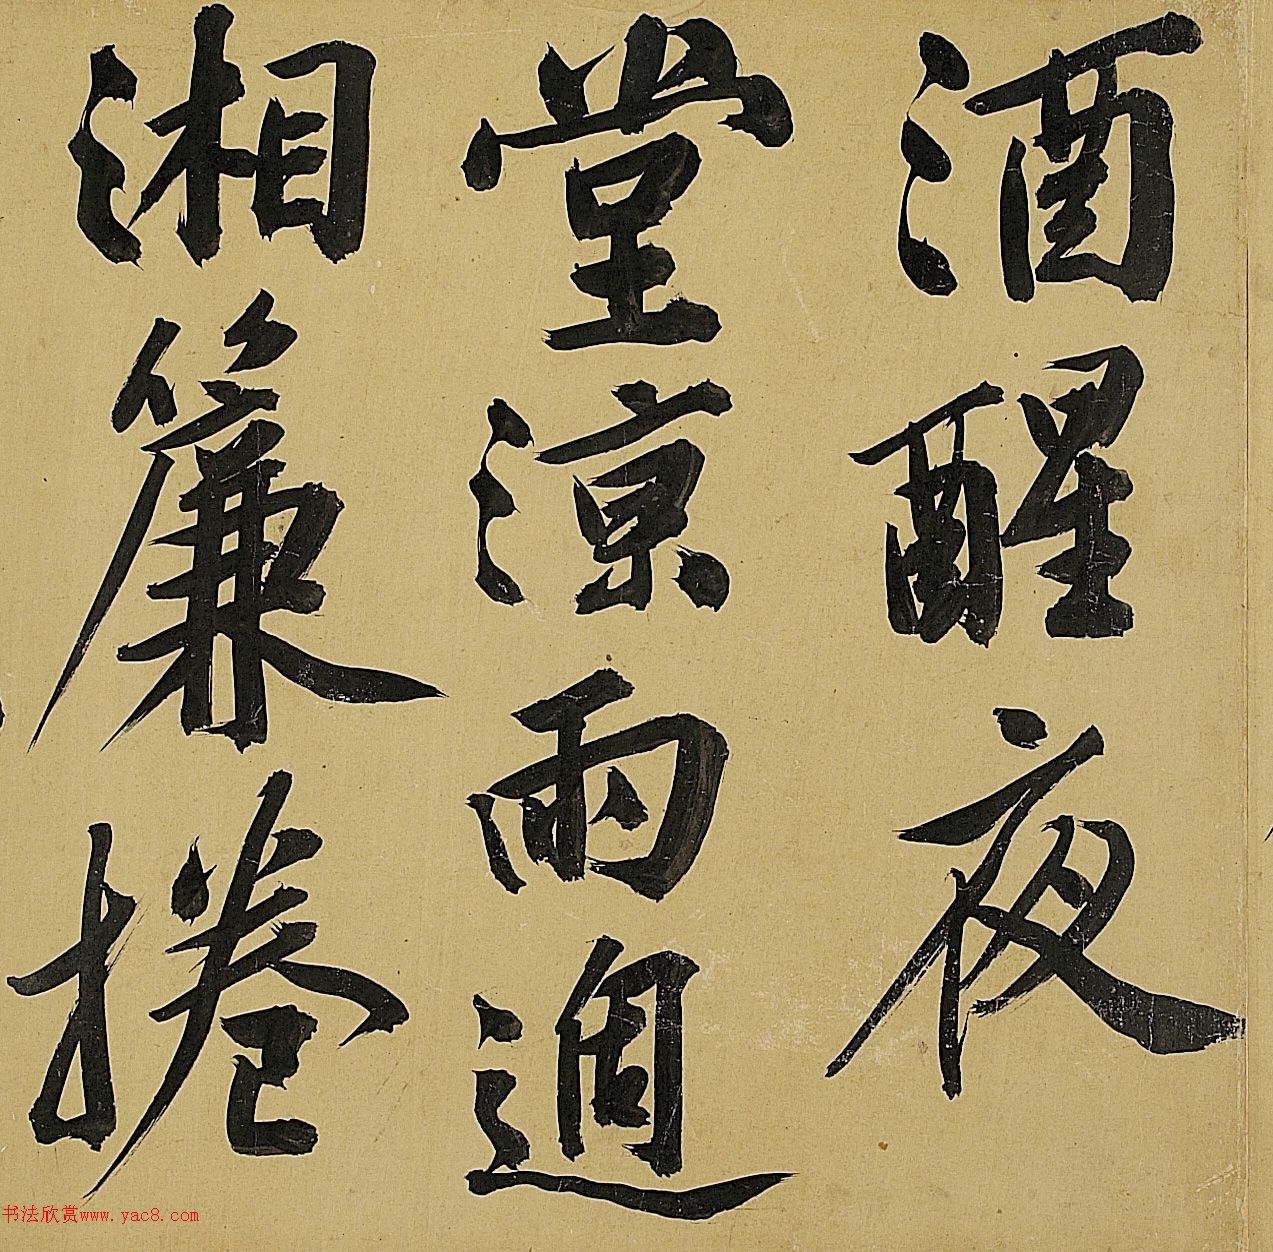 酒醒夜
堂涼雨週
湘簾捲
书法欣赏www.yac8.com